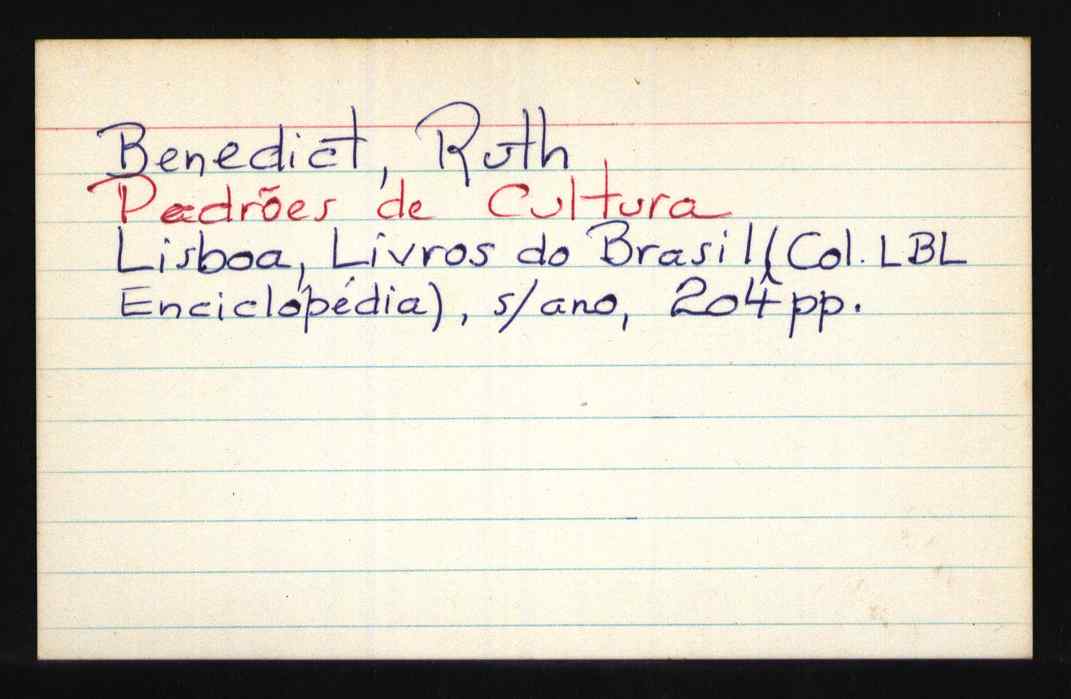 Benedict, Ruth
Padrões de Cultura
Lisboa, Livros do Brasil (Col. LBL
Enciclopédia), s/ano, 204 pp.